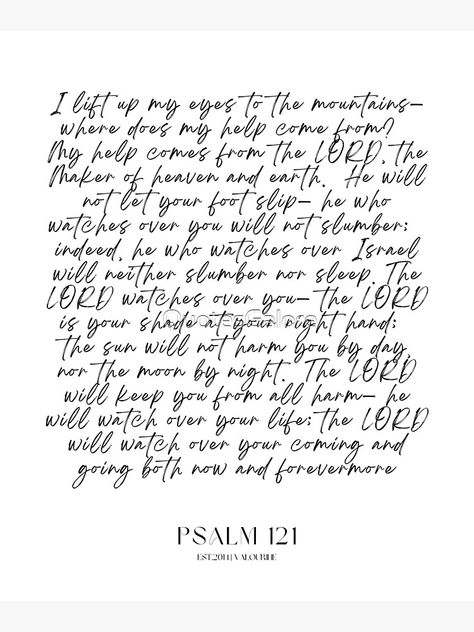 I lift up my eyes to the mountains—
where does my help come from?
My help comes from the LORD, the
Maker of heaven and earth. He will
not let your foot slip— he who
watches over you will not slumber;
indeed, he who watches over Israel
will neither slumber nor sleep. The
LORD watches over you— the LORD
is your shade at your right hand;
the sun will not harm you by day,
nor the moon by night. The LORD
will keep you from all harm— he
will watch over your life; the LORD
will watch over your coming and
going both now and forevermore
PSALM 121
EST.2014 | VALOURINE